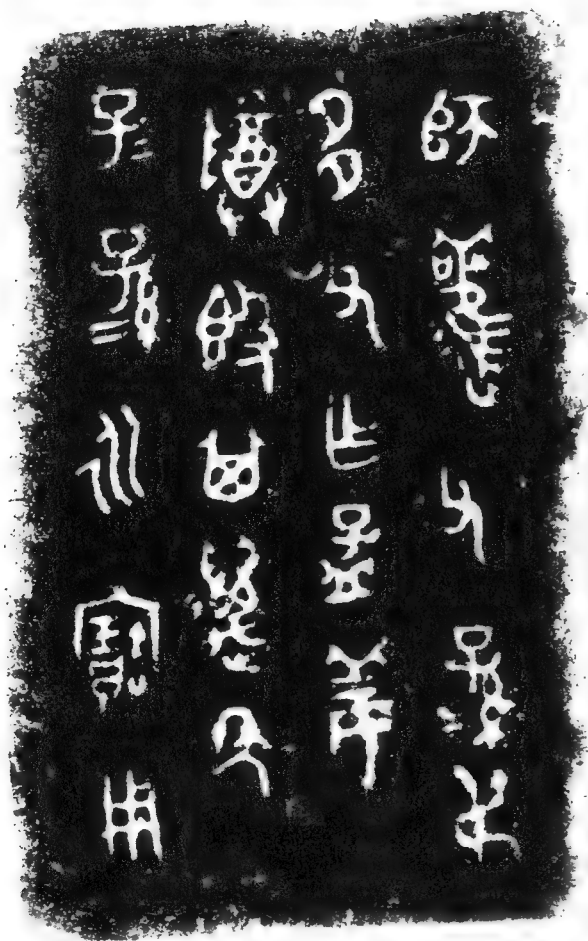 師趛父孫弔
多父乍孟姜
尊簋其萬年
子孫永寶用